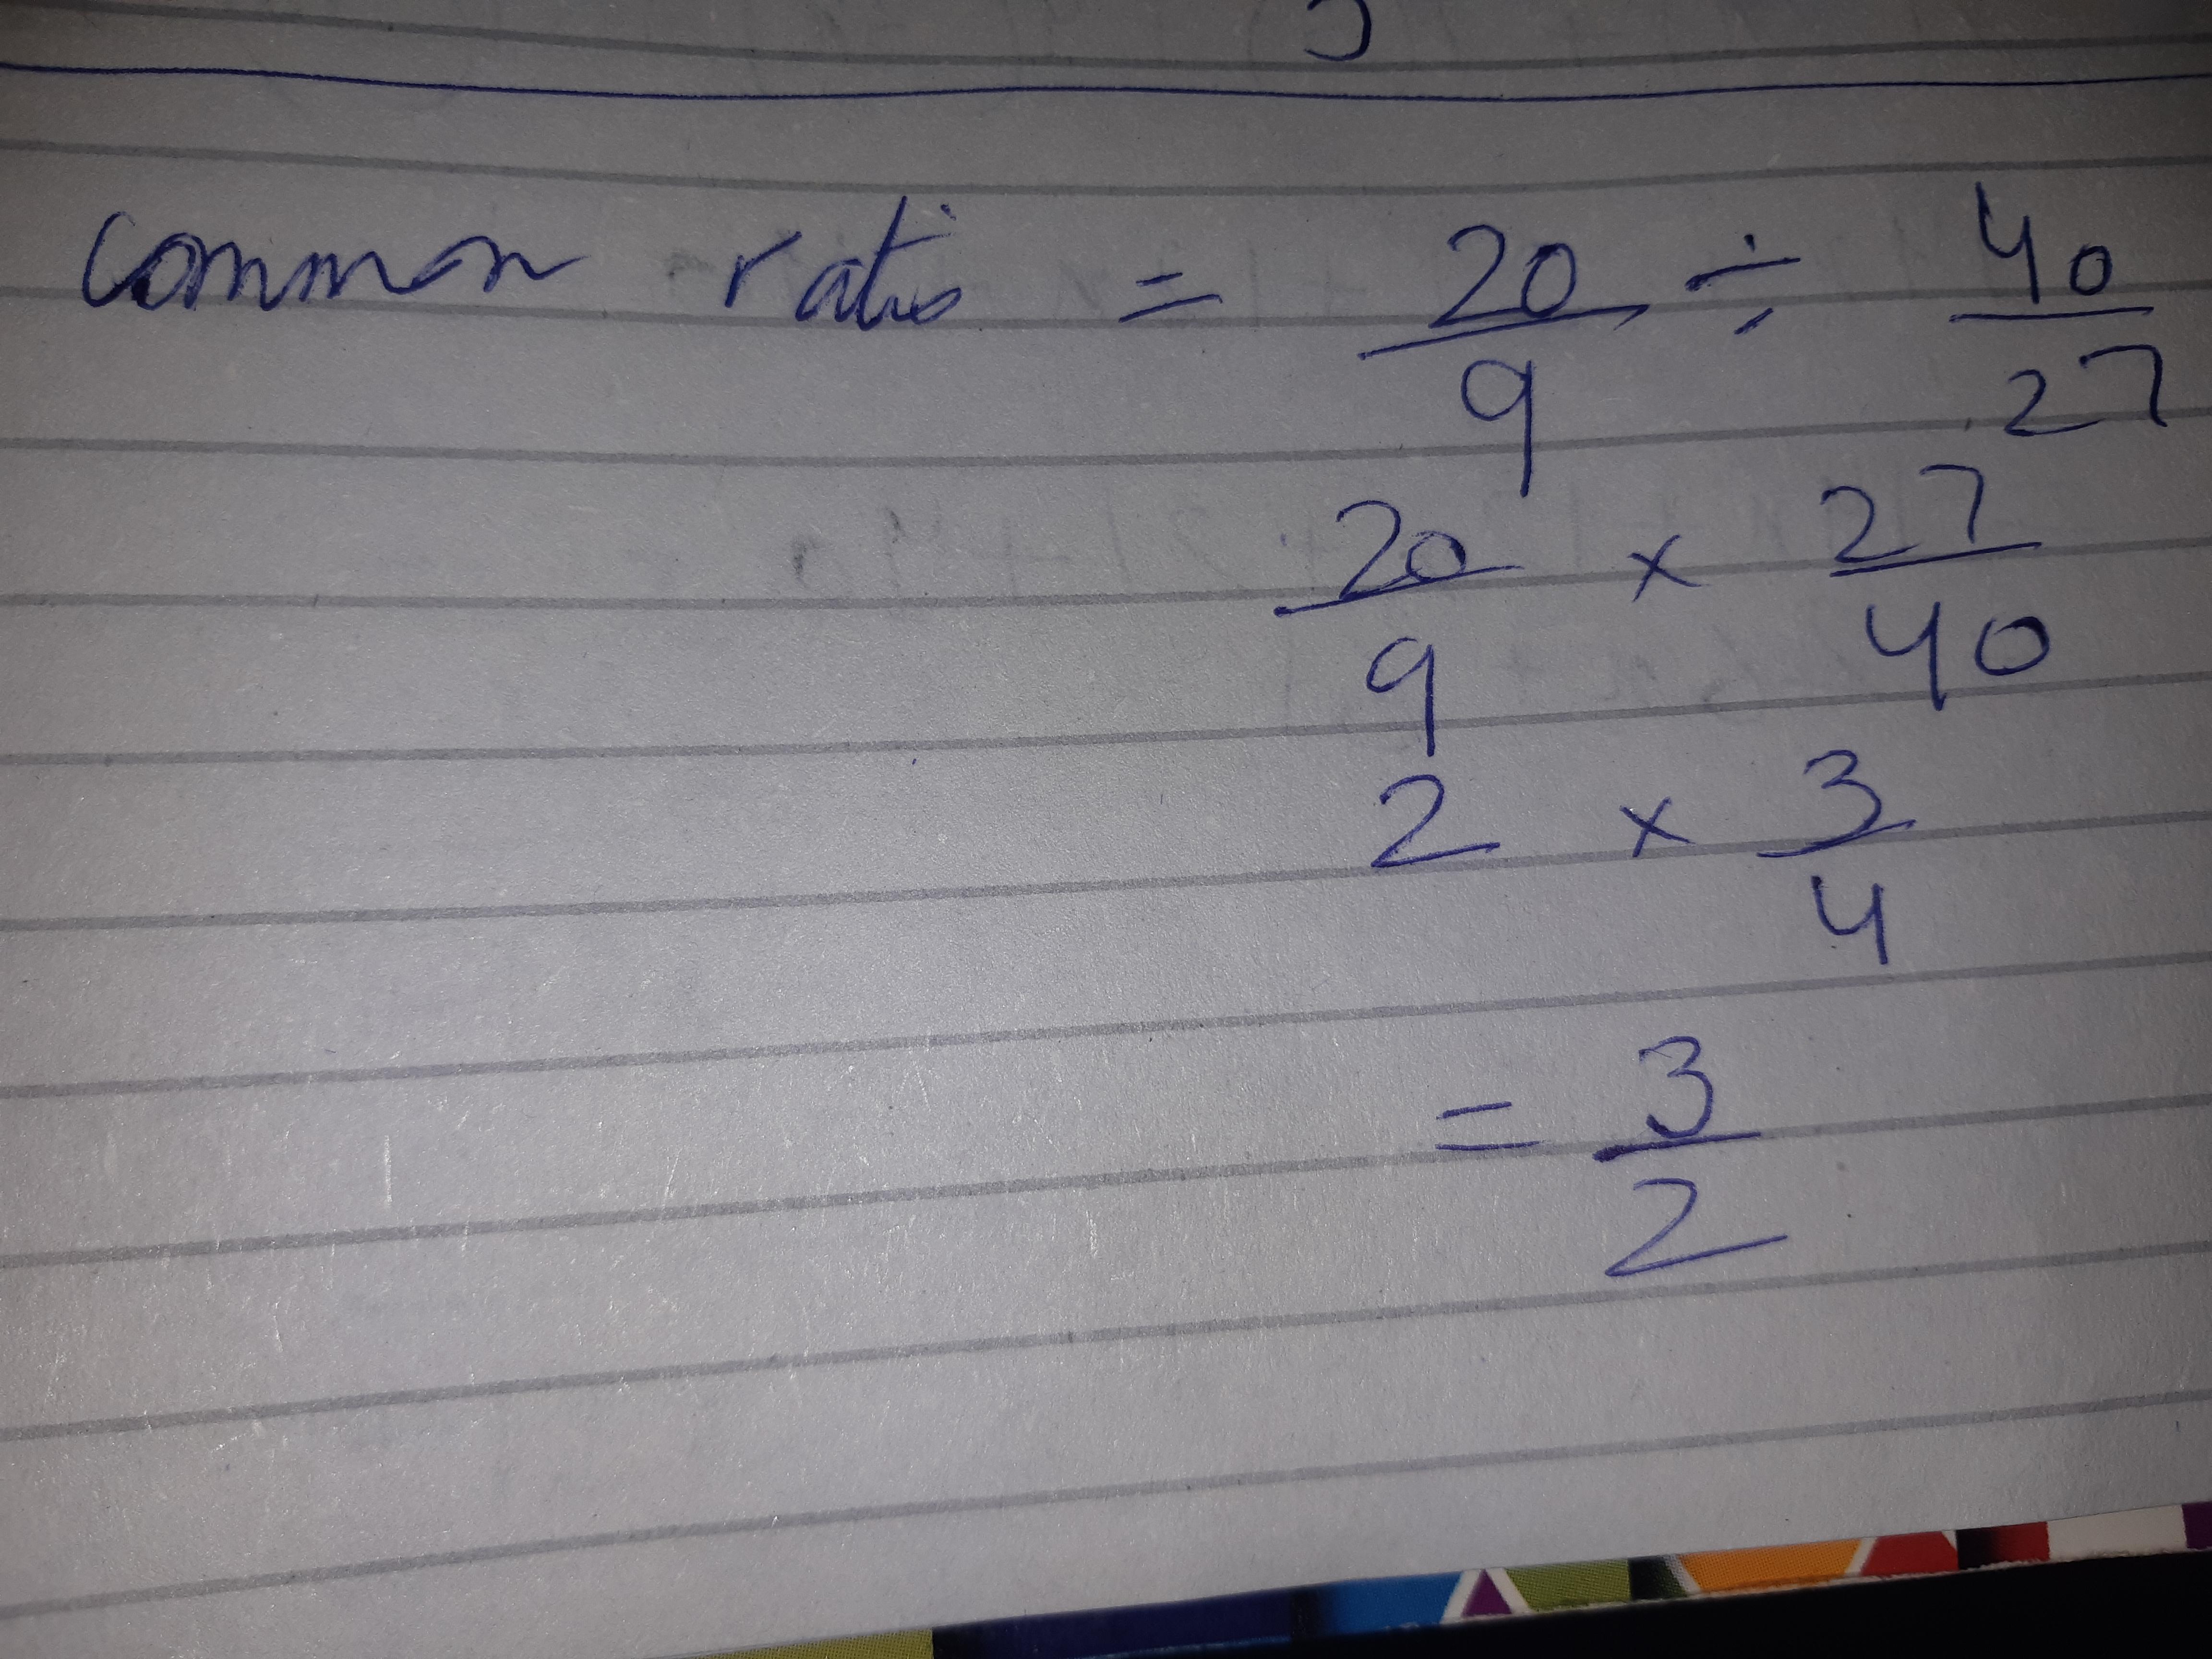 common ratio = 20/9 ÷ 40/27
20/9 × 27/40
2 × 3/4
= 3/2